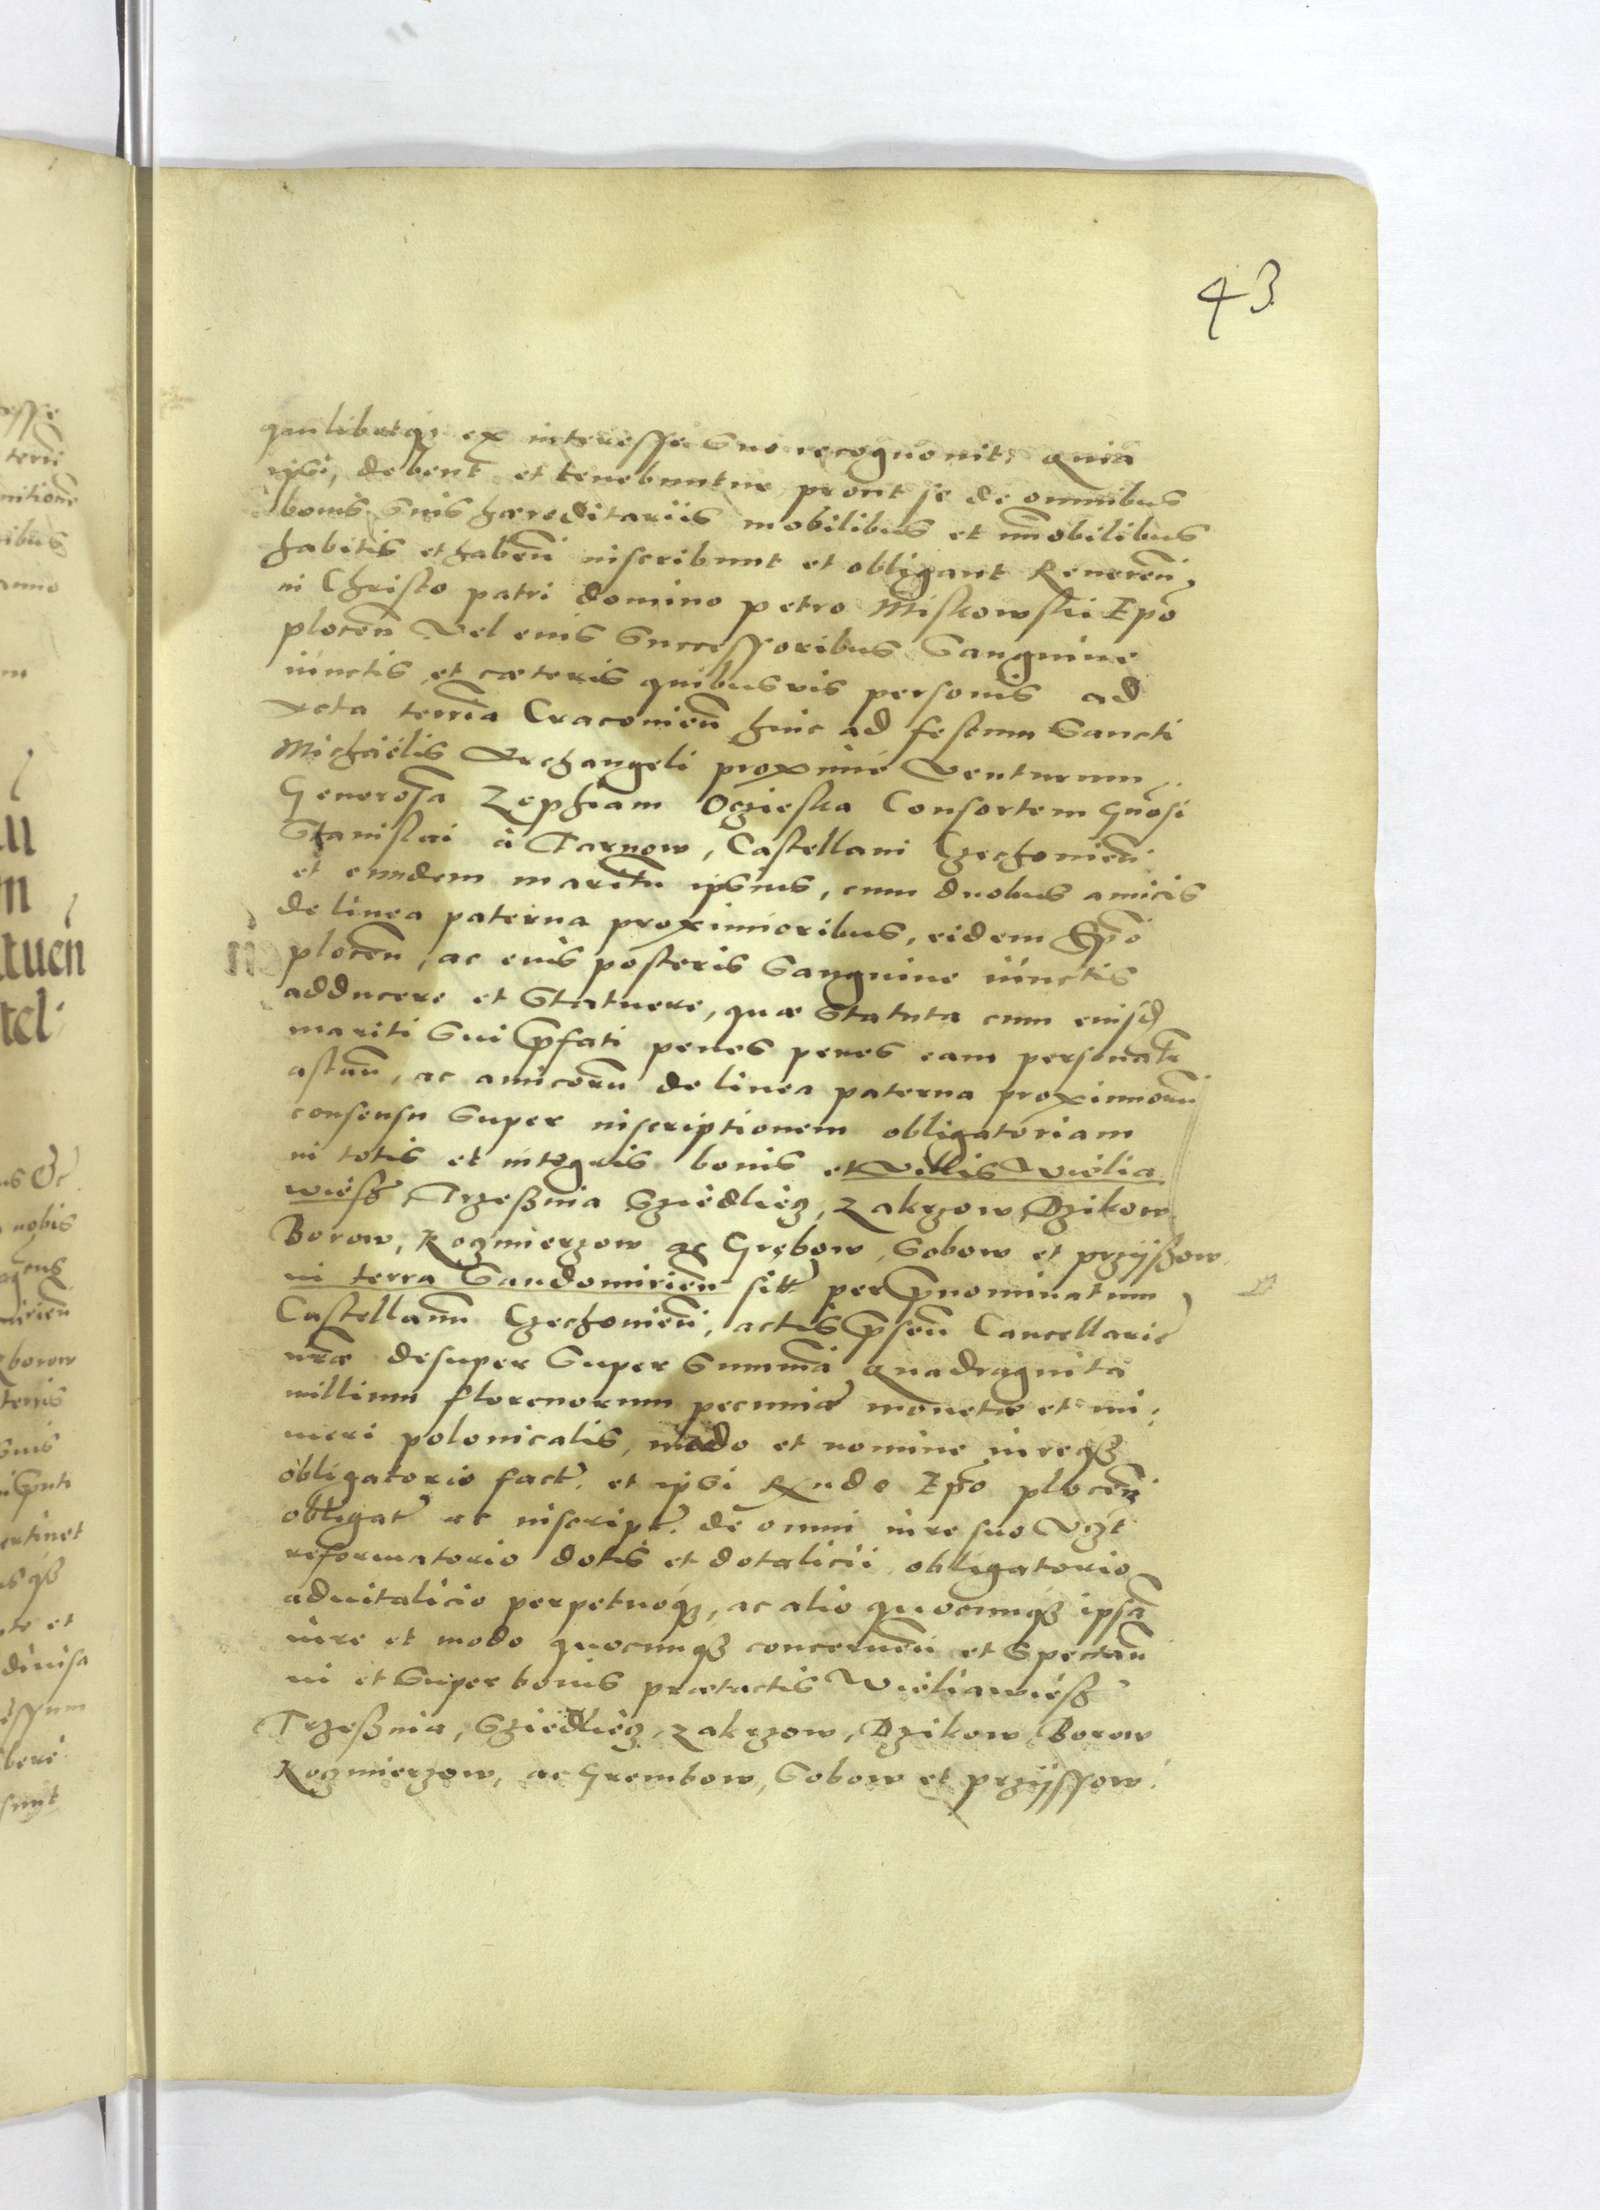 43
quilibetq3 ex interesse suo recognovit. Quia
ipsi, debent et tenebuntur prout se de omnibus
bonis suis haereditariis mobilibus et immobilibus
habitis et haben inscribunt et obligant Reveren,
in Christo patri domino petro Miskowski Epo
plocen vel eius successoribus sanguine
iunctis et caeteris quibusvis personis ad
Acta terria Cracovien hinc ad festum sancti
Michaëlis Archangeli proxime venturum
Generosa Zophiam Oczieska Consortem gnosi
Stanislai à Tarnow, Castellani Czechovien
et eundem maritu ipsius, cum duobus amicis
de linea paterna proximioribus, eidem Epo
plocen, ac eius posteris sanguine iunctis
adducere et statuere, quae statuta cum eiusd
mariti sui pfati penes penes eam personalr
astan, ac amicoru de linea paterna proximioru
consensu super inscriptionem obligatoriam
in totis et integris bonis et villis Wielia
wiesz, Trzeßnia Sziedliecz, Zakrzow, Dzikow
Borow, Koczmierzow ac Grębow, Sobow et przÿszow
in terra Sandomirien sitt per pnominatum
Castellanu Czechovien, actis psen Cancellarie
nrae desuper super summa Quadraginta
millium florenorum pecuniae monetae et nu,
meri polonicalis, modo et nomine iureq3
obligatorio fact. et ipsi Rxndo Epo plocen
obligat ac inscript. de omni iure suo vizt
reformatorio dotis et dotalicii obligatorio
advitalicio perpetuoq3, ac alio quocunq3 ipsa
iure et modo quocunq3 concernen et spectan
in et super bonis praetactis Wieliawiesz
Trzeßnia, Sziedliecz, Zakrzow, Dzikow Borow
Koczmierzow, ac Grembow, Sobow et przÿssow.